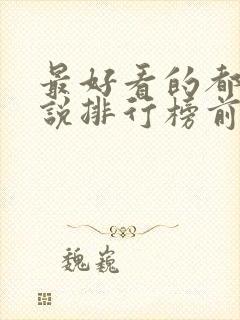 最好看的都
说排行榜前
魏巍